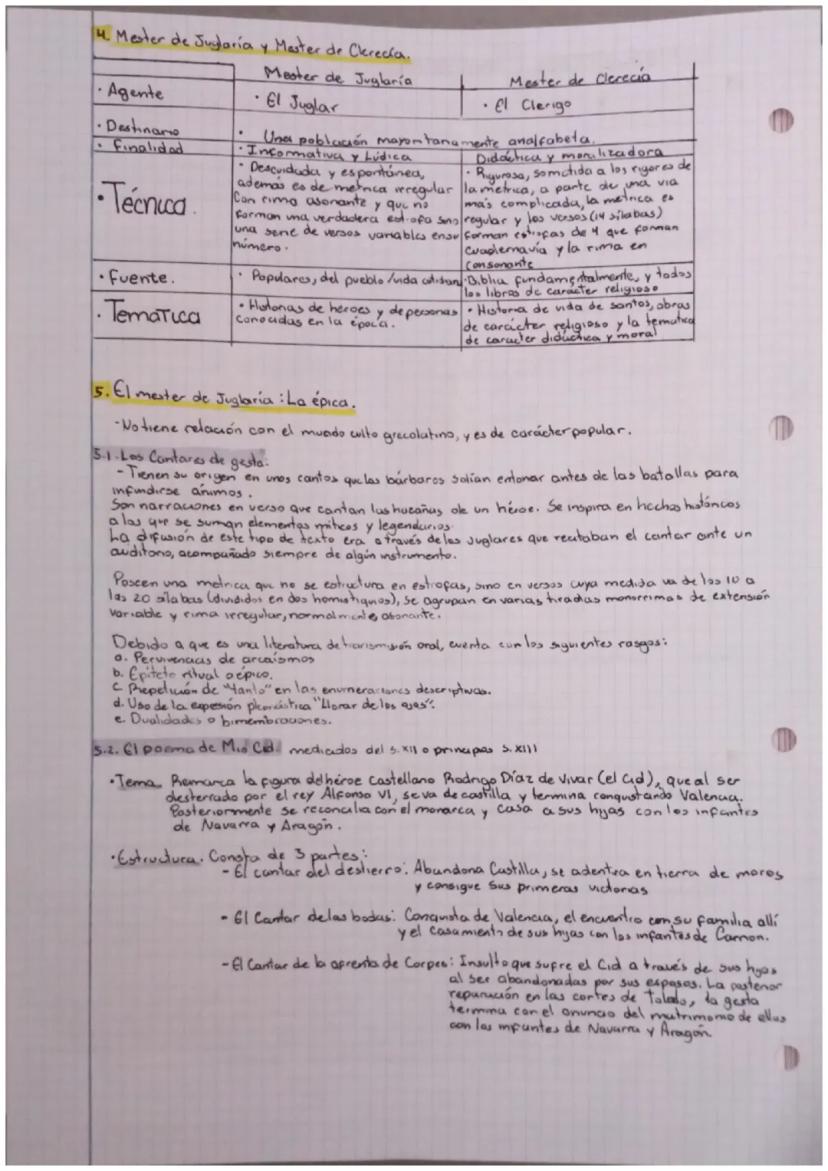 4. Mester de Juglaría y Mester de Clerecía.
Mester de Juglaría
Mester de Clerecía
· Agente
· El Juglar
· El Clerigo
· Destinario
· Una población mayoritariamente analfabeta.
· Finalidad
· Informativa y Lúdica
Didáctica y moralizadora
· Técnica.
· Descuidada y espontánea,
además es de metrica irregular
Con rima asonante y que no
forman una verdadera estrofa sino
una serie de versos variables en su
número.
· Rigurosa, sometida a los rigores de
la metrica, a parte de una via
más complicada, la métrica es
regular y los versos (14 sílabas)
forman estrofas de 4 que forman
Cuadernavía y la rima en
Consonante
· Fuente.
· Populares, del pueblo/vida cotidiana
· Biblia fundamentalmente, y todos
los libros de carácter religioso
· Temática
· Historias de héroes y de personas
Conocidas en la época.
· Historia de vida de santos, obras
de carácter religioso y la tematica
de caracter didáctica y moral
5. El mester de Juglaría: La épica.
-No tiene relación con el mundo culto grecolatino, y es de carácter popular.
5.1. Los Cantares de gesta:
- Tienen su origen en unos cantos que los bárbaros solían entonar antes de las batallas para
infundirse ánimos.
Son narraciones en verso que cantan las hazañas de un héroe. Se inspira en hechos históricos
a los que se suman elementos míticos y legendarios.
La difusión de este tipo de texto era a través de los Juglares que recitaban el cantar ante un
auditorio, acompañado siempre de algún instrumento.
Poseen una metrica que no se estructura en estrofas, sino en versos cuya medida va de los 10 a
las 20 sílabas (divididos en dos homistiquios), se agrupan en varias tiradas monorrimas de extensión
variable y rima irregular, normalmente asonante.
Debido a que es una literatura de transmisión oral, cuenta con los siguientes rasgos:
a. Pervivencias de arcaísmos
b. Epíteto ritual o épico.
c. Repetición de "tanto" en las enumeraciones descriptivas.
d. Uso de la expresión pleonástica "Llorar de los ojos".
e. Dualidades o bimembraciones.
5.2. El poema de Mio Cid. mediados del s. XII o principios s. XIII
· Tema. Remarca la figura del héroe Castellano Rodrigo Díaz de Vivar (el Cid), que al ser
desterrado por el rey Alfonso VI, se va de castilla y termina conquistando Valencia.
Posteriormente se reconcilia con el monarca y casa a sus hijas con los infantes
de Navarra y Aragón.
· Estructura. Consta de 3 partes:
- El cantar del destierro: Abandona Castilla, se adentra en tierra de moros
y consigue sus primeras victorias
- El Cantar de las bodas: Conquista de Valencia, el encuentro con su familia allí
y el casamiento de sus hijas con los infantes de Carrion.
- El Cantar de la afrenta de Corpes: Insulto que sufre el Cid a través de sus hijas
al ser abandonadas por sus esposos. La posterior
reparación en las cortes de Toledo, la gesta
termina con el anuncio del matrimonio de ellas
con los infantes de Navarra y Aragón.